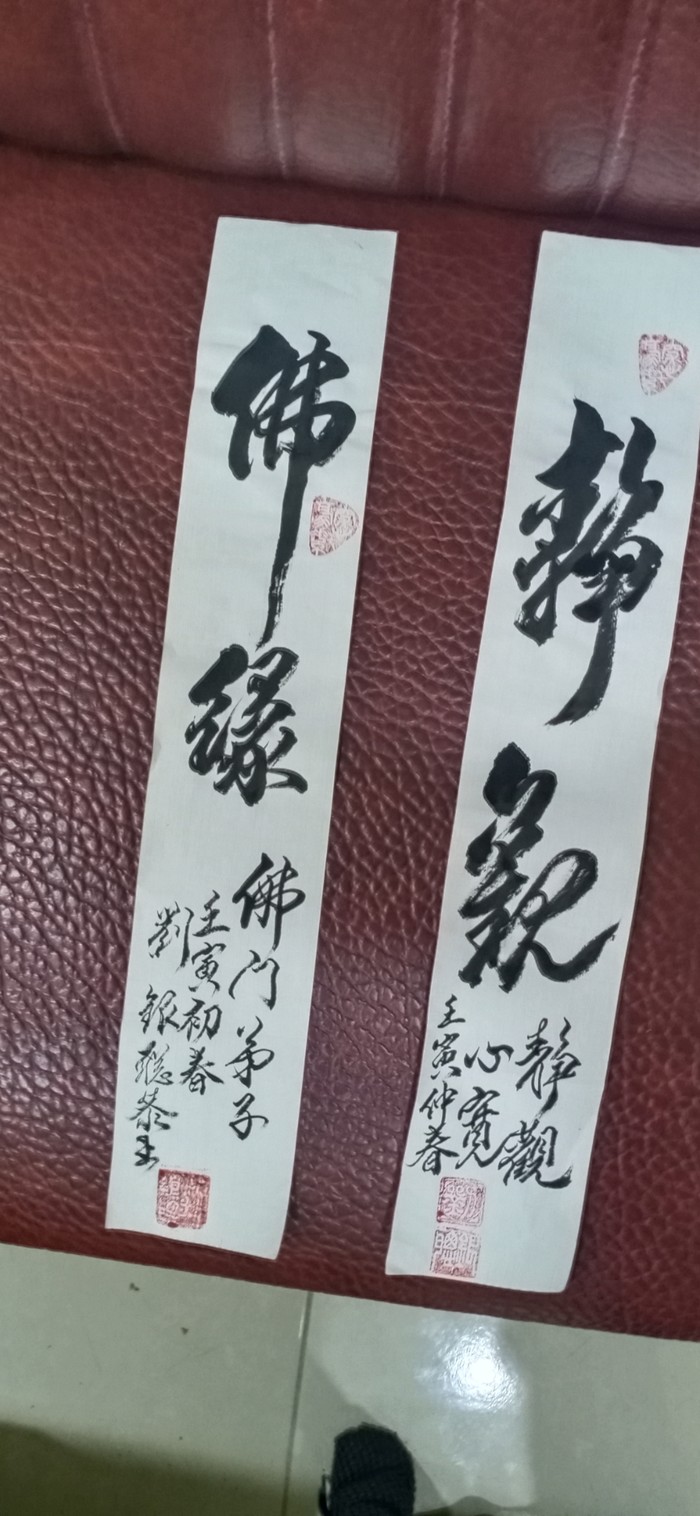 靜觀
靜觀
心寬
壬寅仲春
佛緣
佛門弟子
壬寅初春
劉銀聰恭書